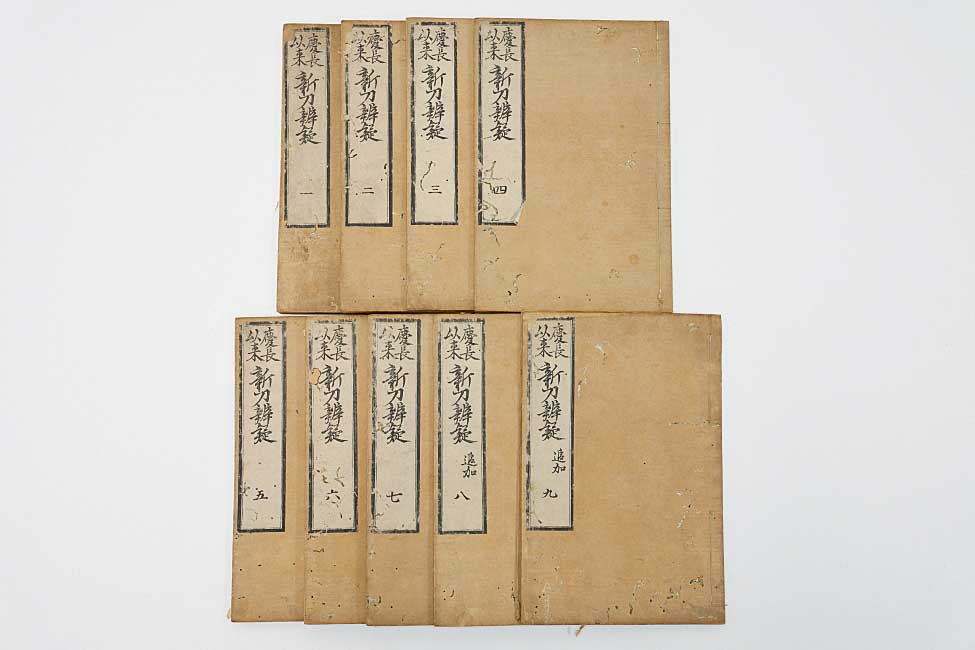 慶長
以来
新刀辨疑
一
慶長
以来
新刀辨疑
二
慶長
以来
新刀辨疑
三
慶長
以来
新刀辨疑
四
慶長
以来
新刀辨疑
五
慶長
以来
新刀辨疑
六
慶長
以来
新刀辨疑
七
慶長
以来
新刀辨疑
追加
八
慶長
以来
新刀辨疑
追加
九